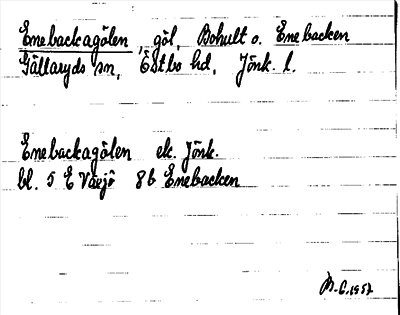 Enebackagölen, göl, Bohult o. Enebacken
Gällaryds sn, Östbo hd, Jönk. l.
Enebackagölen ek. Jönk.
bl. 5 E Växjö 8b Enebacken
M.C. 1957